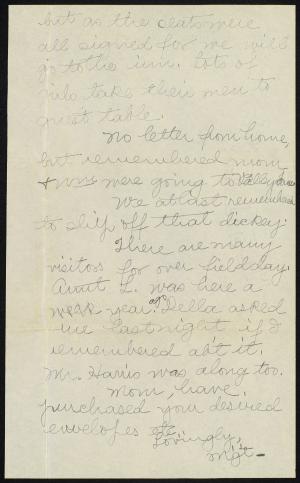 but as the seats were
all signed for we will
go to the inn. Lots of
take their men to
guest table.
No letter from home,
but remembered mom
were going to Valley
We at last remembered
to ship off that dickey.
There are many
visitors for over field day.
Aunt L. was here a
year ago. Della asked
me last night if I'd
remembered ab't it.
Mr. Harris was along too.
Mom, have
purchased your desired
envelopes etc.
Lovingly,
Mgt-